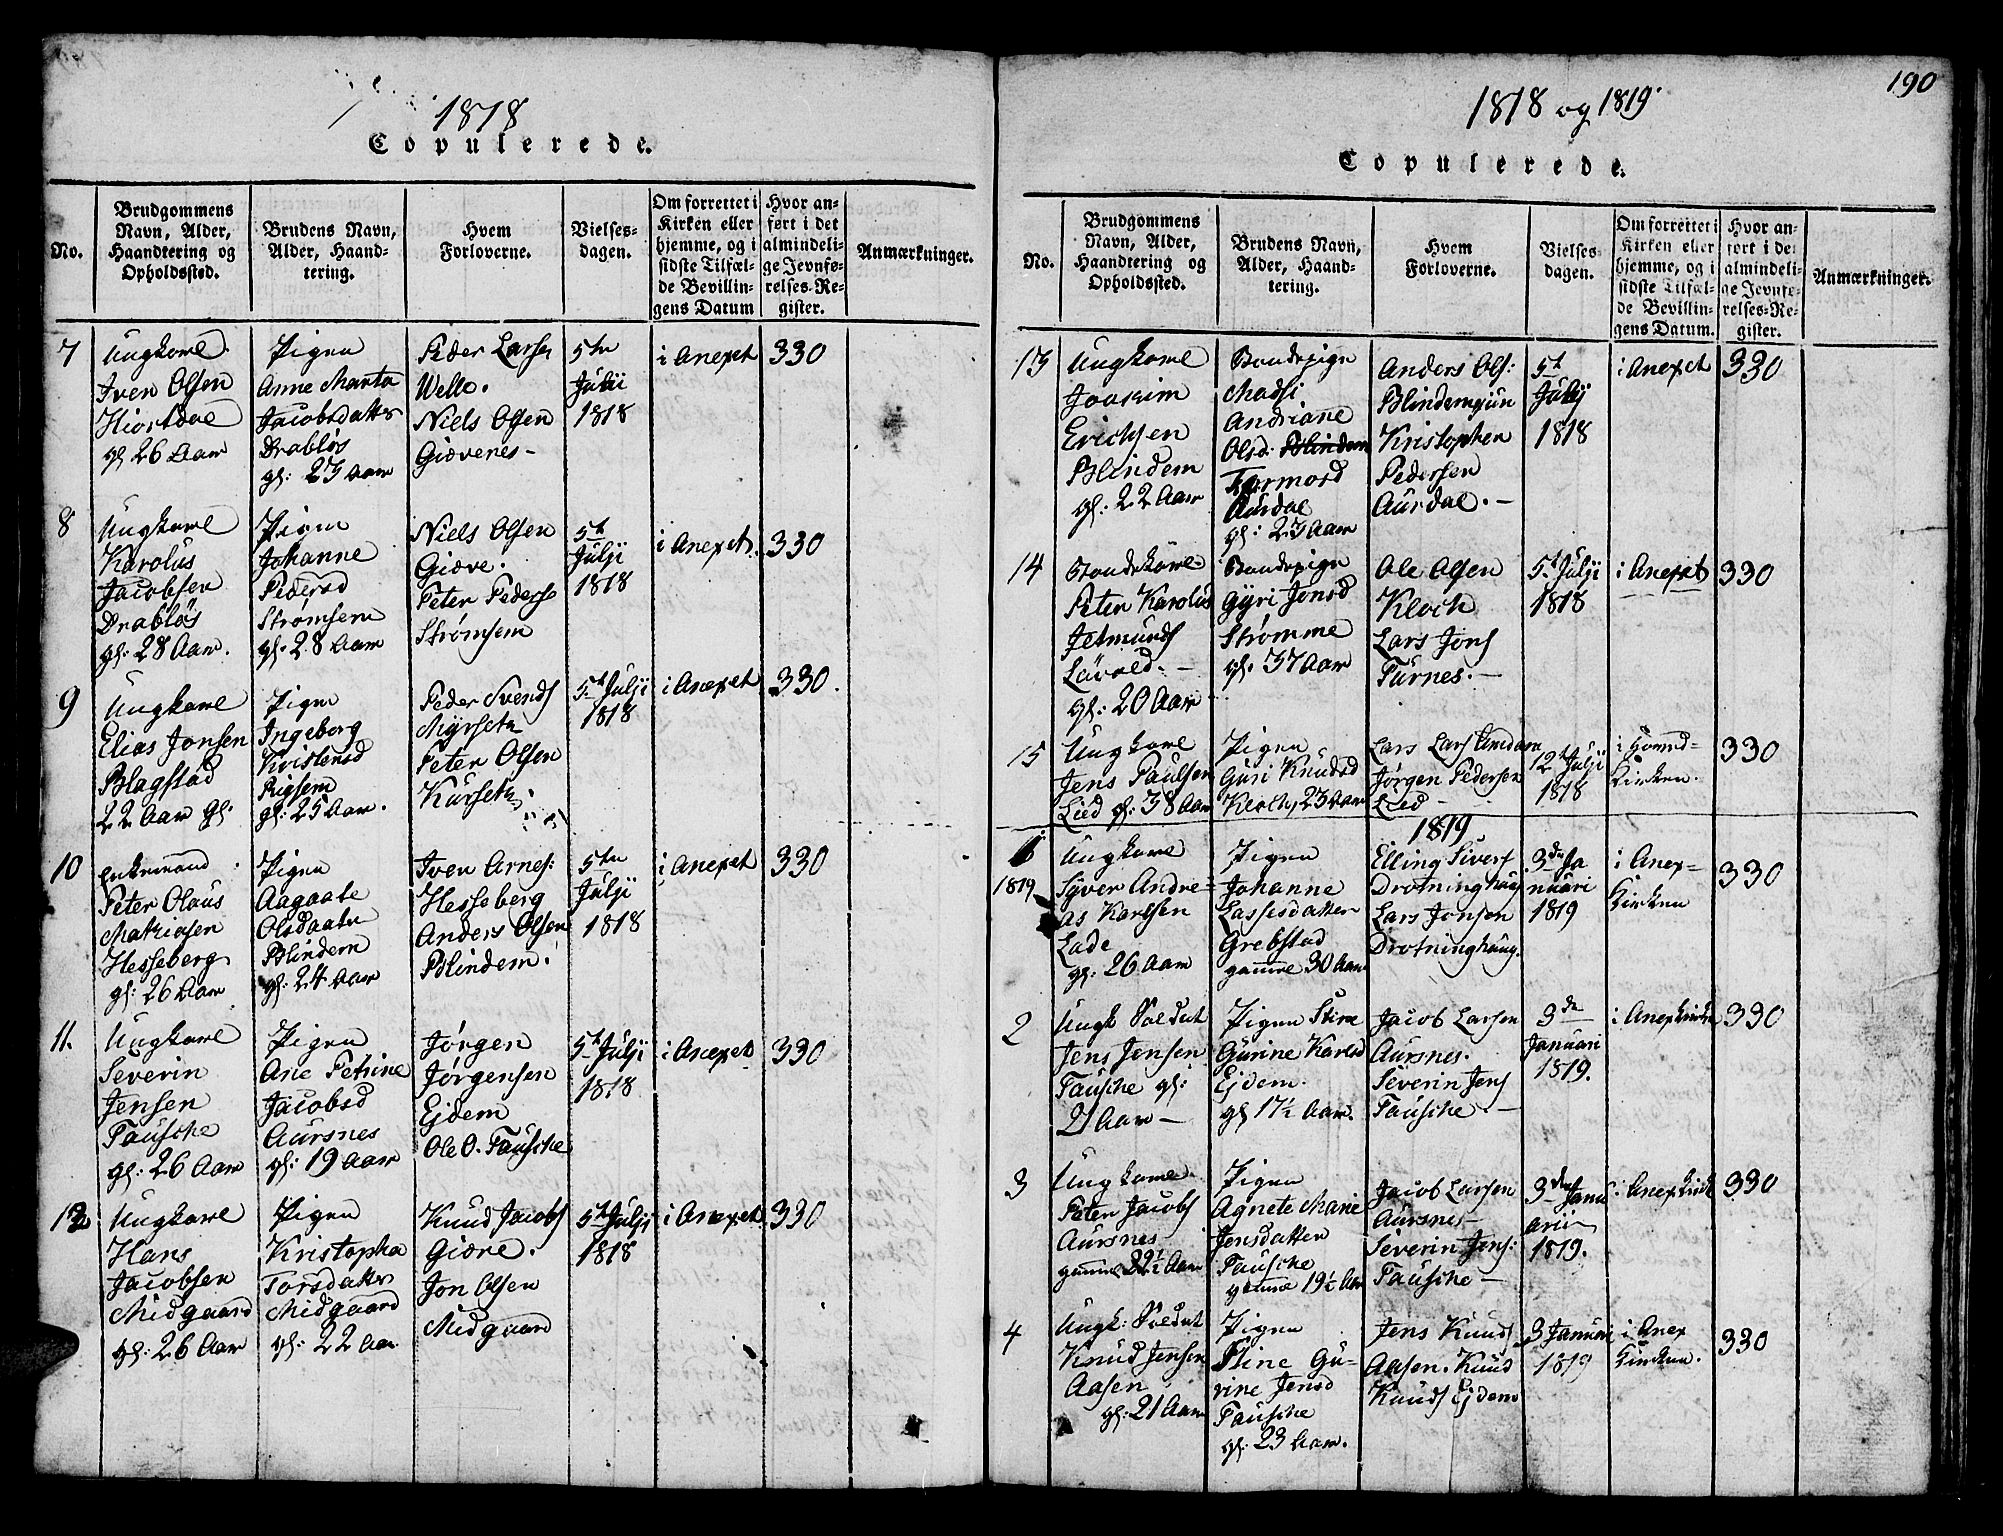 1818
Copulerede.
No.
Brudgommens
Navn, Alder,
Haandtering og
Opholdssted.
Brudens Navn,
Alder, Haand-
tering.
Hvem
Forloverne.
Vielses-
dagen.
Om forrettet i
Kirken eller
hjemme, og i
sidste Tilfæl-
de Bevillin-
gens Datum
Hvor an-
ført i det
almindeli-
ge Jevnfø-
relses-Re-
gister.
Anmærkninger.
7
Ungkarl
Iven Olsen
Hiortdal
gl 26 Aar
Pigen
Anne Marta
Jacobsdatter
Drabløs
gl: 23 Aar
Peder Larsen
Welle.
Niels Olsen
Giævenes-
5te
Julji
1818
i Anexet
330
8
Ungkarl
Karolus
Jacobsen
Drabløs
gl: 28 Aar.
Pigen
Johanne
Pedersd
Strømsem
gl. 28 Aar
Niels Olsen
Giæve.
Peter Peders
Strømsem
5te
Julji
1818
i Anexet
330
9
Ungkarl
Elias Jonsen
Blagstad
22 Aar gl.
Pigen
Ingeborg
Kristensd
Rigsem
gl: 25 Aar.
Peder Svends
Myrseth
Peter Olsen
Kurseth
5te Julji
1818
i Anexet
330.
10
Enkemand
Peter Olaus
Mathiasen
Hesseberg
gl: 26 Aar
Pigen
Aagaate
Olsdaater
Blindem
gl: 24 Aar
Iven Arnes:
Hesseberg
Anders Olsen
Blindem.
5te
Julji
1818
i Anexet
330
11.
Ungkarl
Severin
Jensen
Fausche
gl: 26 Aar
Pigen
Ane Petrine
Jacobsd
Aursnes
gl: 19 Aar
Jørgen
Jørgensen
Ejdem
Ole O. Fausche
5te Julji
1818
i Anexet
330
12
Ungkarl
Hans
Jacobsen
Midgaard
gl: 26 Aar
Pigen
Kristopha
Torsdatter
Midgaard
gl: 22 Aar
Knud Jacobs
Giære.
Jon Olsen
Midgaard
5te Julji
1818
i Anexet
330
190
1818 og 1819
Copulerede.
No.
Brudgommens
Navn, Alder,
Haandtering og
Opholdssted.
Brudens Navn,
Alder, Haand-
tering.
Hvem
Forloverne.
Vielses-
dagen.
Om forrettet i
Kirken eller
hjemme, og i
sidste Tilfæl-
de Bevillin-
gens Datum.
Hvor an-
ført i det
almindeli-
ge Jevnfø-
relses-Re-
gister.
Anmærkninger.
13
Ungkarl
Joakim
Erichsen
Blindem
gl: 22 Aar
Bondepige
Madsi
Andriane
Olsd. Blindem
Formord
Aurdal
gl: 23 Aar
Anders Ols:
Blindem
Kristopher
Pedersen
Aurdal.-
5te
Julij
1818
i Anexet
330
14
Bondekarl
Peter Karolus
Jetmunds
Løvold.-
gl: 20 Aar
Bondepige
Gyri Jonsd
Strømme
gl. 37 Aar
Ole Olsen
Kloch
Lars Jons
Furnes.-
5te Julji
1818
i Anexet
330
15
Ungkarl
Jens Paulsen
Lied gl: 38 Aar
Pigen
Guri Knudsd
Kloch, 23 Aar
Lars Lars Amdam
Jørgen Pedersen
Lied
12te Julji
1818
i Hoved-
kirken.
330
1819
1
1819
Ungkarl
Syver Andre-
as Karlsen
Lade
gl: 26 Aar
Pigen
Johanne
Lassesdatter
Grebstad
gamme 30 Aar
Elling Sivers
Drotninghaug
Lars Jonsen
Drotninghaug.
3de Ja
nuari
1819
i Anex-
kirken
330
2
Ungk Soldat
Jens Jensen
Fausche gl:
21 Aar -
Pigen Stine
Gurine Karlsd
Ejdem.
gl 17½ Aar.
Jacob Larsen
Aursnes.
Severin Jens
Fausche.-
3de
Januari
1819.
i Anexkirken
330
3
Ungkarl
Peter Jacobs
Aursnes
Pigen
Agnete Marie
Jensdatter
Fausche
gamme 19½ Aar
Jacob Larsen
Aursnes-
Severin Jens:
Fausche-
3de Janu
arii
1819.
i Anexkirk
330
4
Ungk: Soldat
Knud Jensen
Aasen
gl: 21 Aar
Pigen
Stine Gu-
rine Jensd
Fausche
gl: 23 Aar.
Jens Knuds
Aasen. Knud
Knuds Ejdem
3 Januari
1819
i Anex
kirken.
330